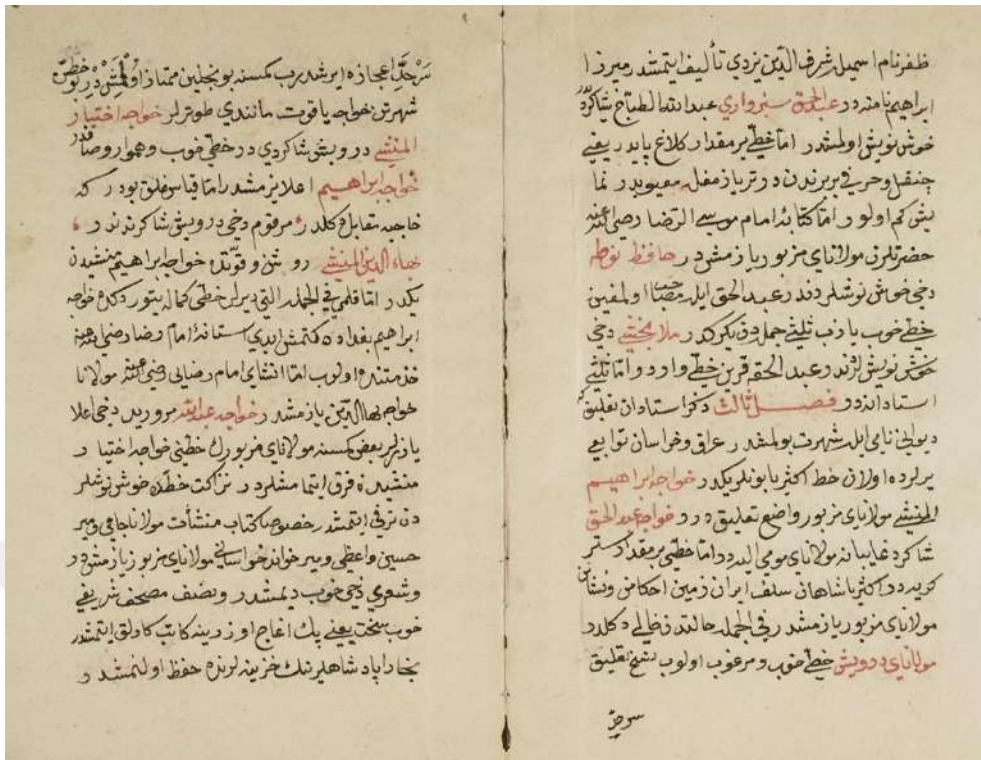 ظفرنام اسیدل شرف الدین یزدی تألیف ایتمشدر میرزا
ابراهیم نامنه در عبدالحق سبزواری عبدالله الطباخ شاکردی
خوش نویش اولمشدر اما خطی بر مقدار کلاغ پایدر یعنی
حرفی بربرندن در
اولور اما کتابهٔ امام موسی الرضا رضی عنه
حضرتلرن مولانای مزبور یازمشدر حافظ فوطه
دخی خوش نوشلردندر عبدالحق ایله اولمغین
خطی خوب یازب ملا بخشی دخی
خوش نویش عبدالحقه قرین خطی واردر اما ثلثی
استاداندر فصل ثالث ذکر استادان تعلیق که
دیوانی نامی ایله شهرت بولمشدر عراق و خراسان توابعی
یرلرده اولان خط اکثر یا بونلریکدر خواجه ابراهیم
المنشی مولانای مزبور واضع تعلیق در و خواجه عبدالحق
شاکرد غایبانه مولانای مومی الیهدر اما خطی بر مقدار ستر
اکثر پادشاهان سلف ایران زمین احکامن و نشانن
مولانای مزبور یازمشدر فی الجمله حالتدن خالی دکلدر
مولانای درویش خطی خوب و مرغوب اولوب نسخ تعلیق
سرحد
سرحد اعجازه ایرشدرب کمسنه بونجلین ممتاز اولمش در بو خطن
شهرتن خواجه یاقوت مانندی طوترلر خواجه اختیار
المنشی درویش شاکردی در خطی خوب و هموار و صافدر
خواجه ابراهیم اعلا یزمشدر اما قیاس غلق بودر که
خاجیه مقابل دکلدر مرقوم دخی درویش شاکردندر
بهاء الدین المنشی روش و قوتده خواجه ابراهیم منشیدن
یکدر اما قلمی فی الجمله التی دیرلر خطی کماله یتوردکده خواجه
ابراهیم بغداده کتمش ایدی استانهٔ امام رضا رضی عنه
خذمتنده اولوب اما انشای امام رضایی رضی عنه مولانا
خواجه بهاالدین یازمشدر خواجه عبدالله مروارید دخی اعلا
یازرلر بعض کمسنه مولانای مزبورک خطنی خواجه اختیار
منشیده فرق ایتمامشلردر نزاکت خطده خوش نوشلر
دن ترقی ایتمشدر خصوصا کتاب منشأت مولانا جامی و میر
حسین واعظی و میر خواند خراسانی مولانای مزبور یازمشدر
و شعری دخی خوب دیمشدر و نصف مصحف شریفی
خوب سخت یعنی پک اغاج اوزرینه کاتب کادلق ایتمشدر
بخارا پادشاهلرینک خزینه لرنده حفظ اولنمشدر و